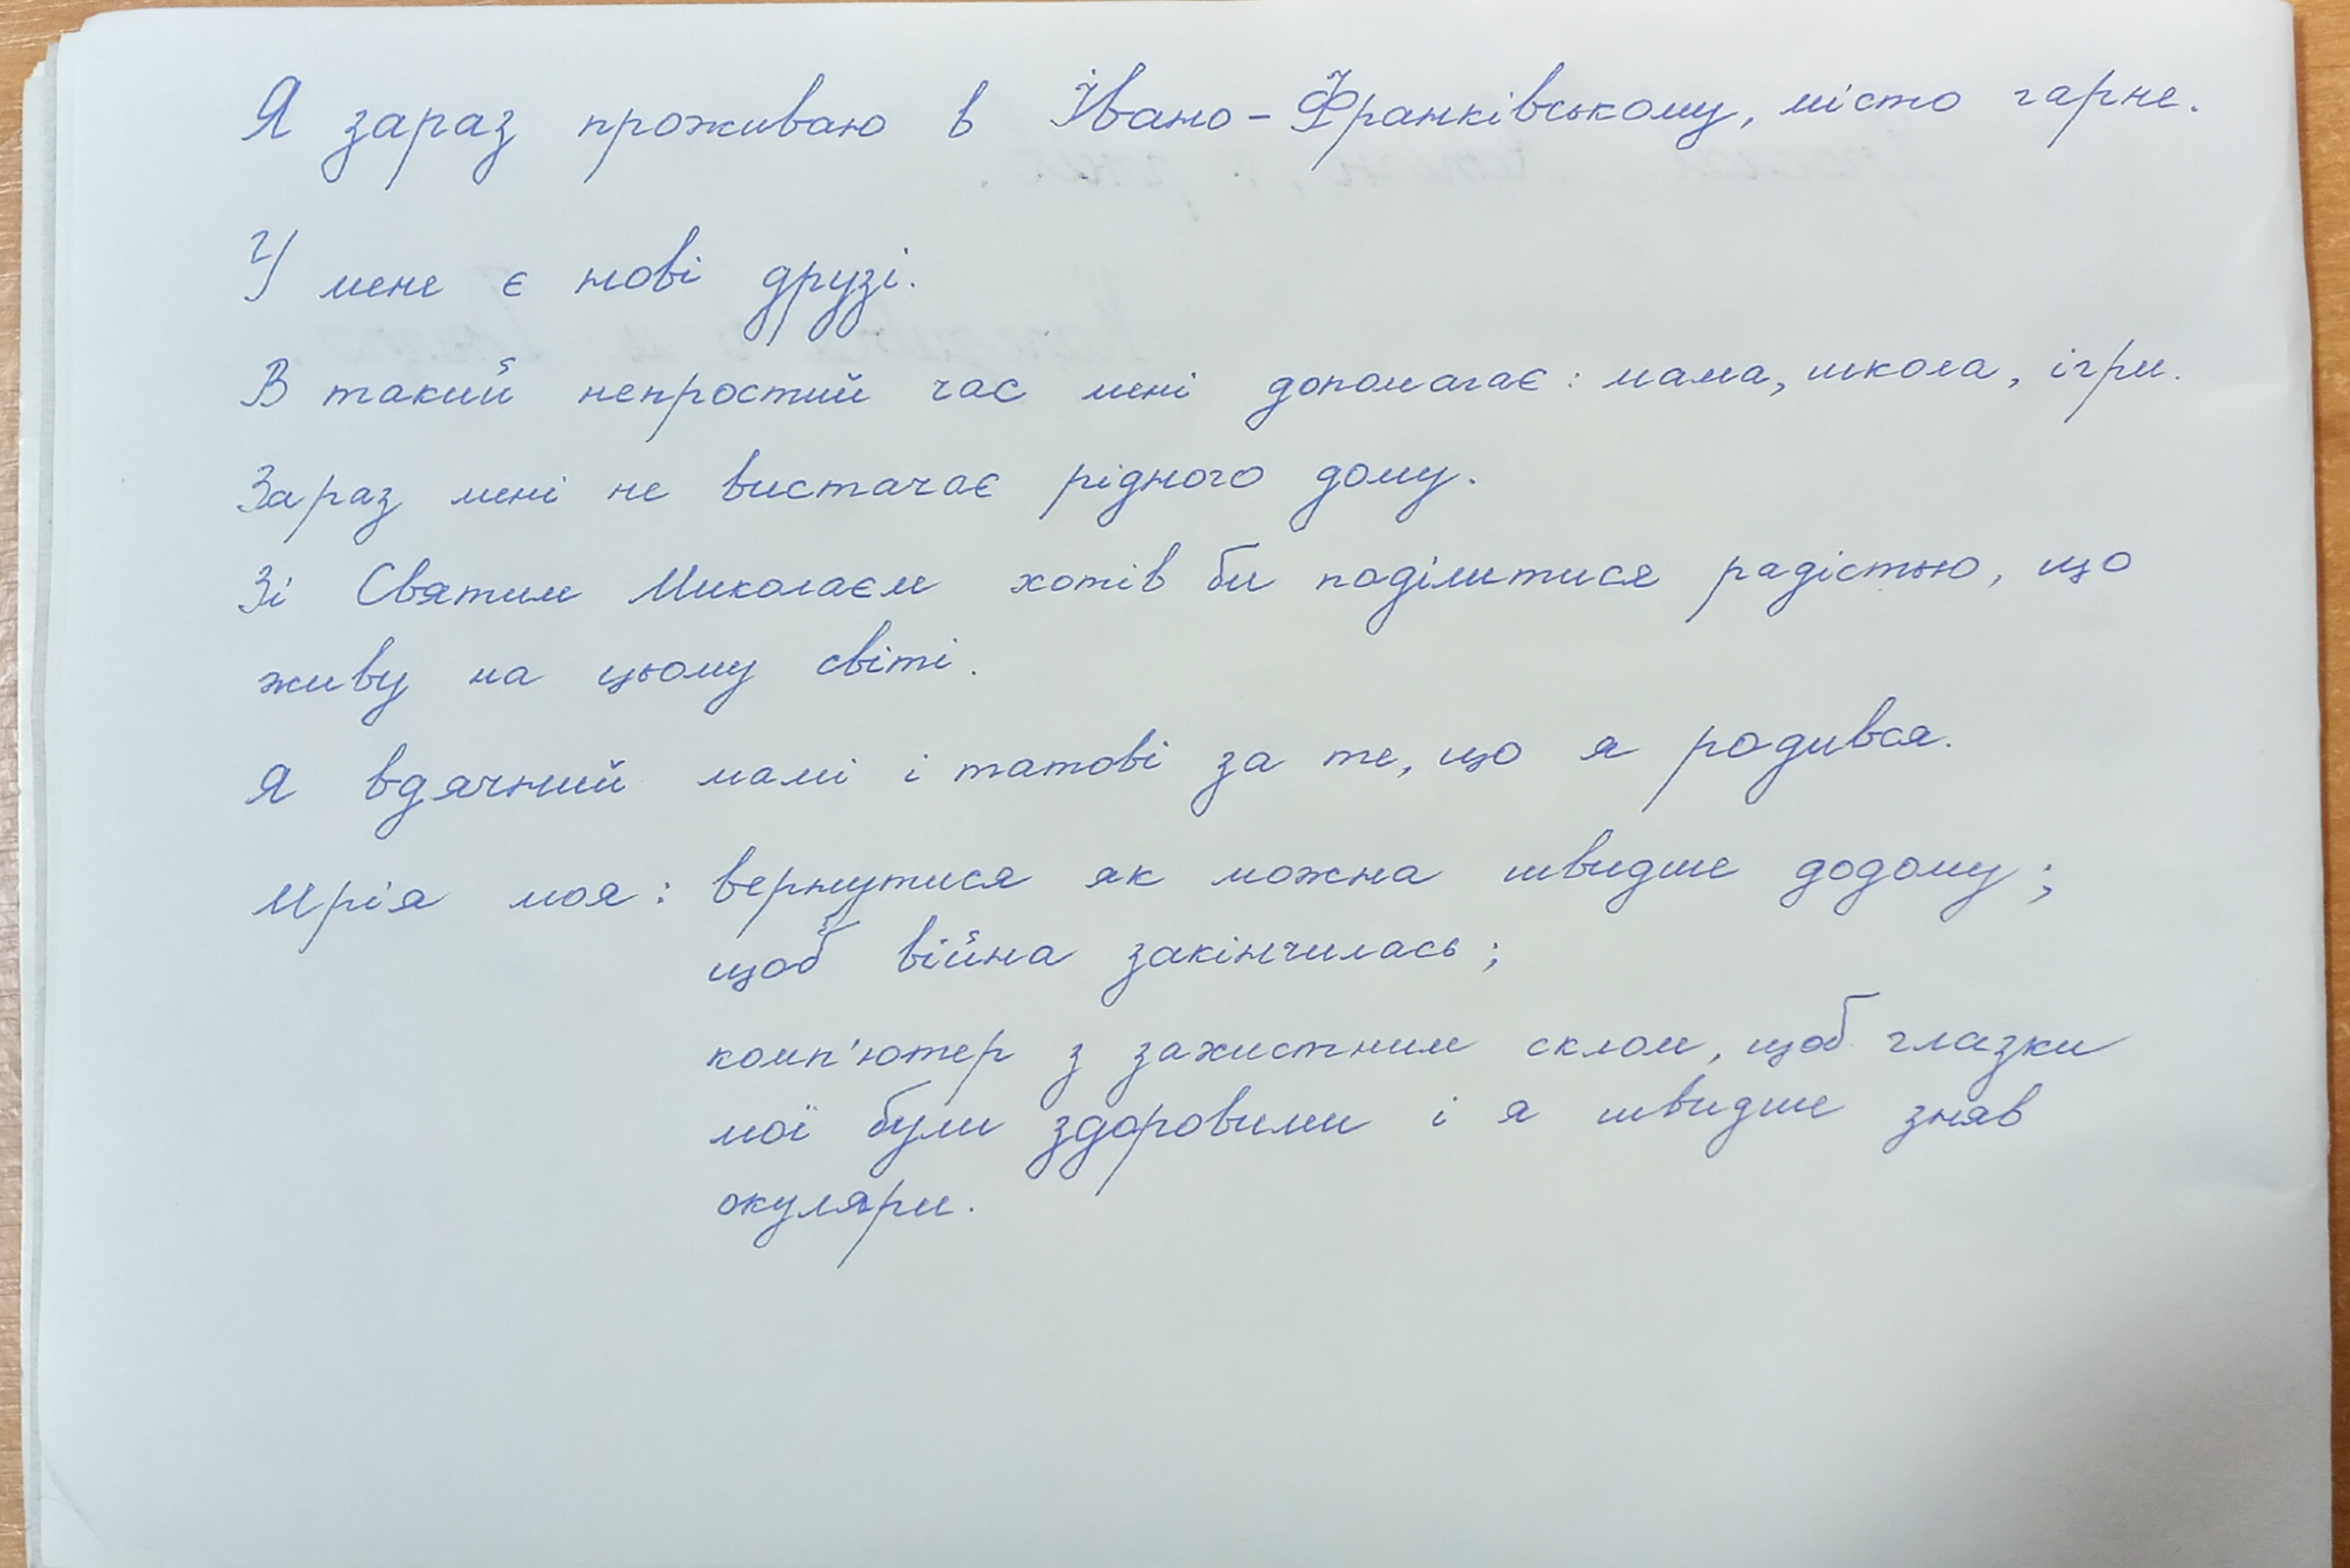 Я зараз проживаю в Івано-Франківському, місто гарне.
У мене є нові друзі.
В такий непростий час мені допомагає: мама, школа, ігри.
Зараз мені не вистачає рідного дому.
Зі Святим Миколаєм хотів би поділитися радістью, що
живу на цьому світі.
Я вдячний мамі і татові за те, що я родився.
Мрія моя: вернутися як можна швидше додому;
щоб війна закінчилась;
комп'ютер з захистним склом, щоб глазки
мої були здоровими і я швидше зняв
окуляри.